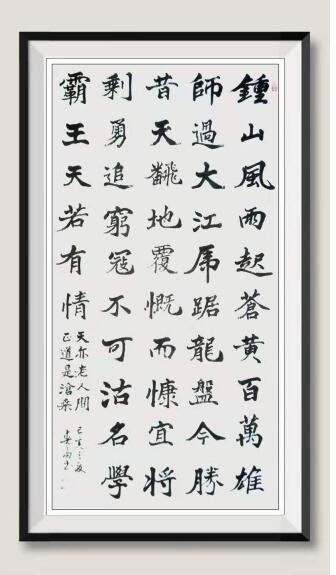 鍾山風雨起蒼黃百萬雄
師過大江乕踞龍盤今勝
昔天飜地覆慨而慷宜將
剩勇追窮寇不可沽名學
霸王天若有情
天亦老人間
正道是滄桑
己亥之夏